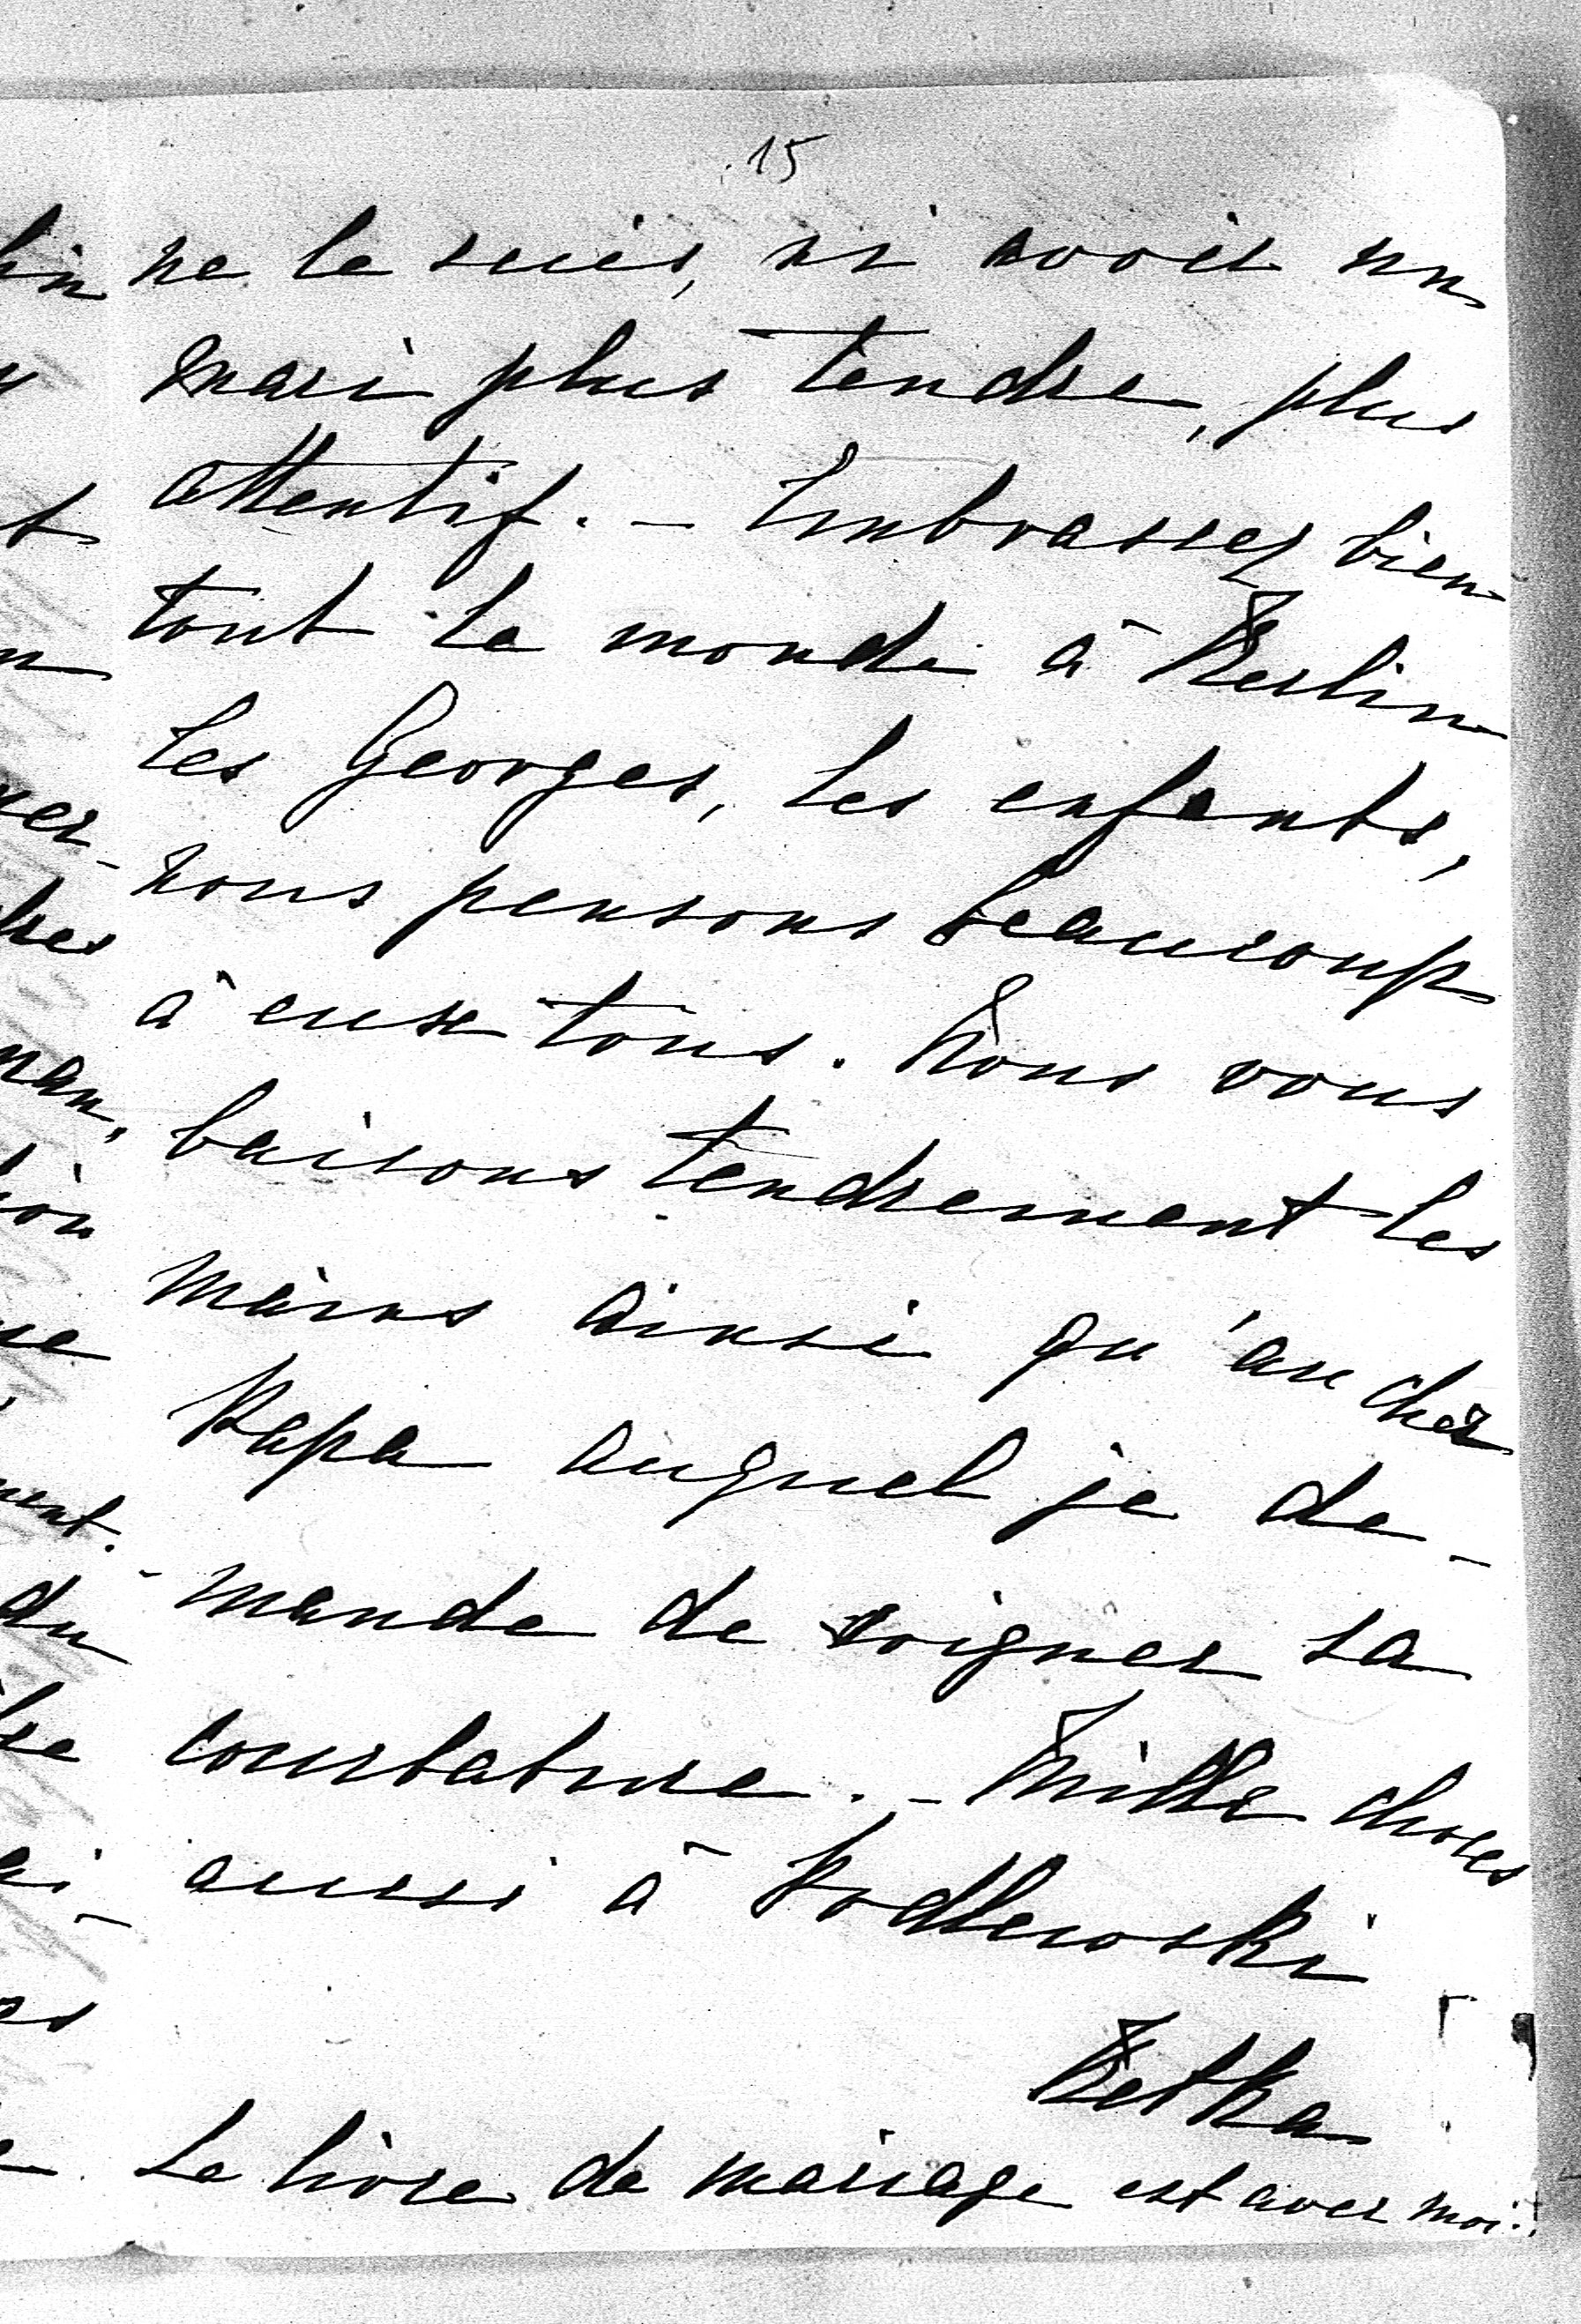 15
ne le suis, ni avoir un
mari plus tendre, plus
attentif. - Embrassez bien
tout le monde à Berlin
les Georges, les enfants,
nous pensons beaucoup
à eux tous. Nous vous
baisons tendrement les
mains ainsi qu'au cher
Papa auquel je de-
mande de soigner sa
courbature. - Mille choses
aussi à Podlewski
Betka
Le livre de mariage est avec moi.